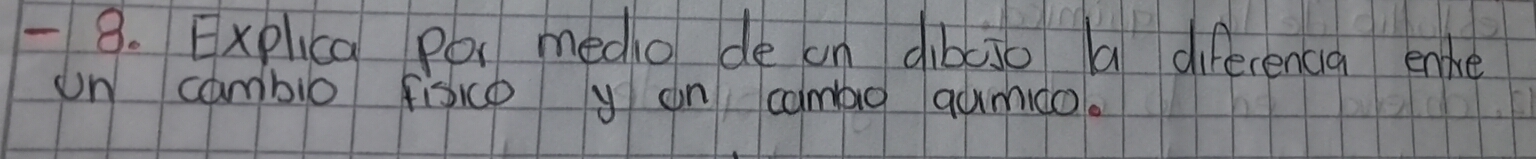 - 8. Explica por medio de un dibujo la diferencia entre
un cambio físico y un cambio químico.